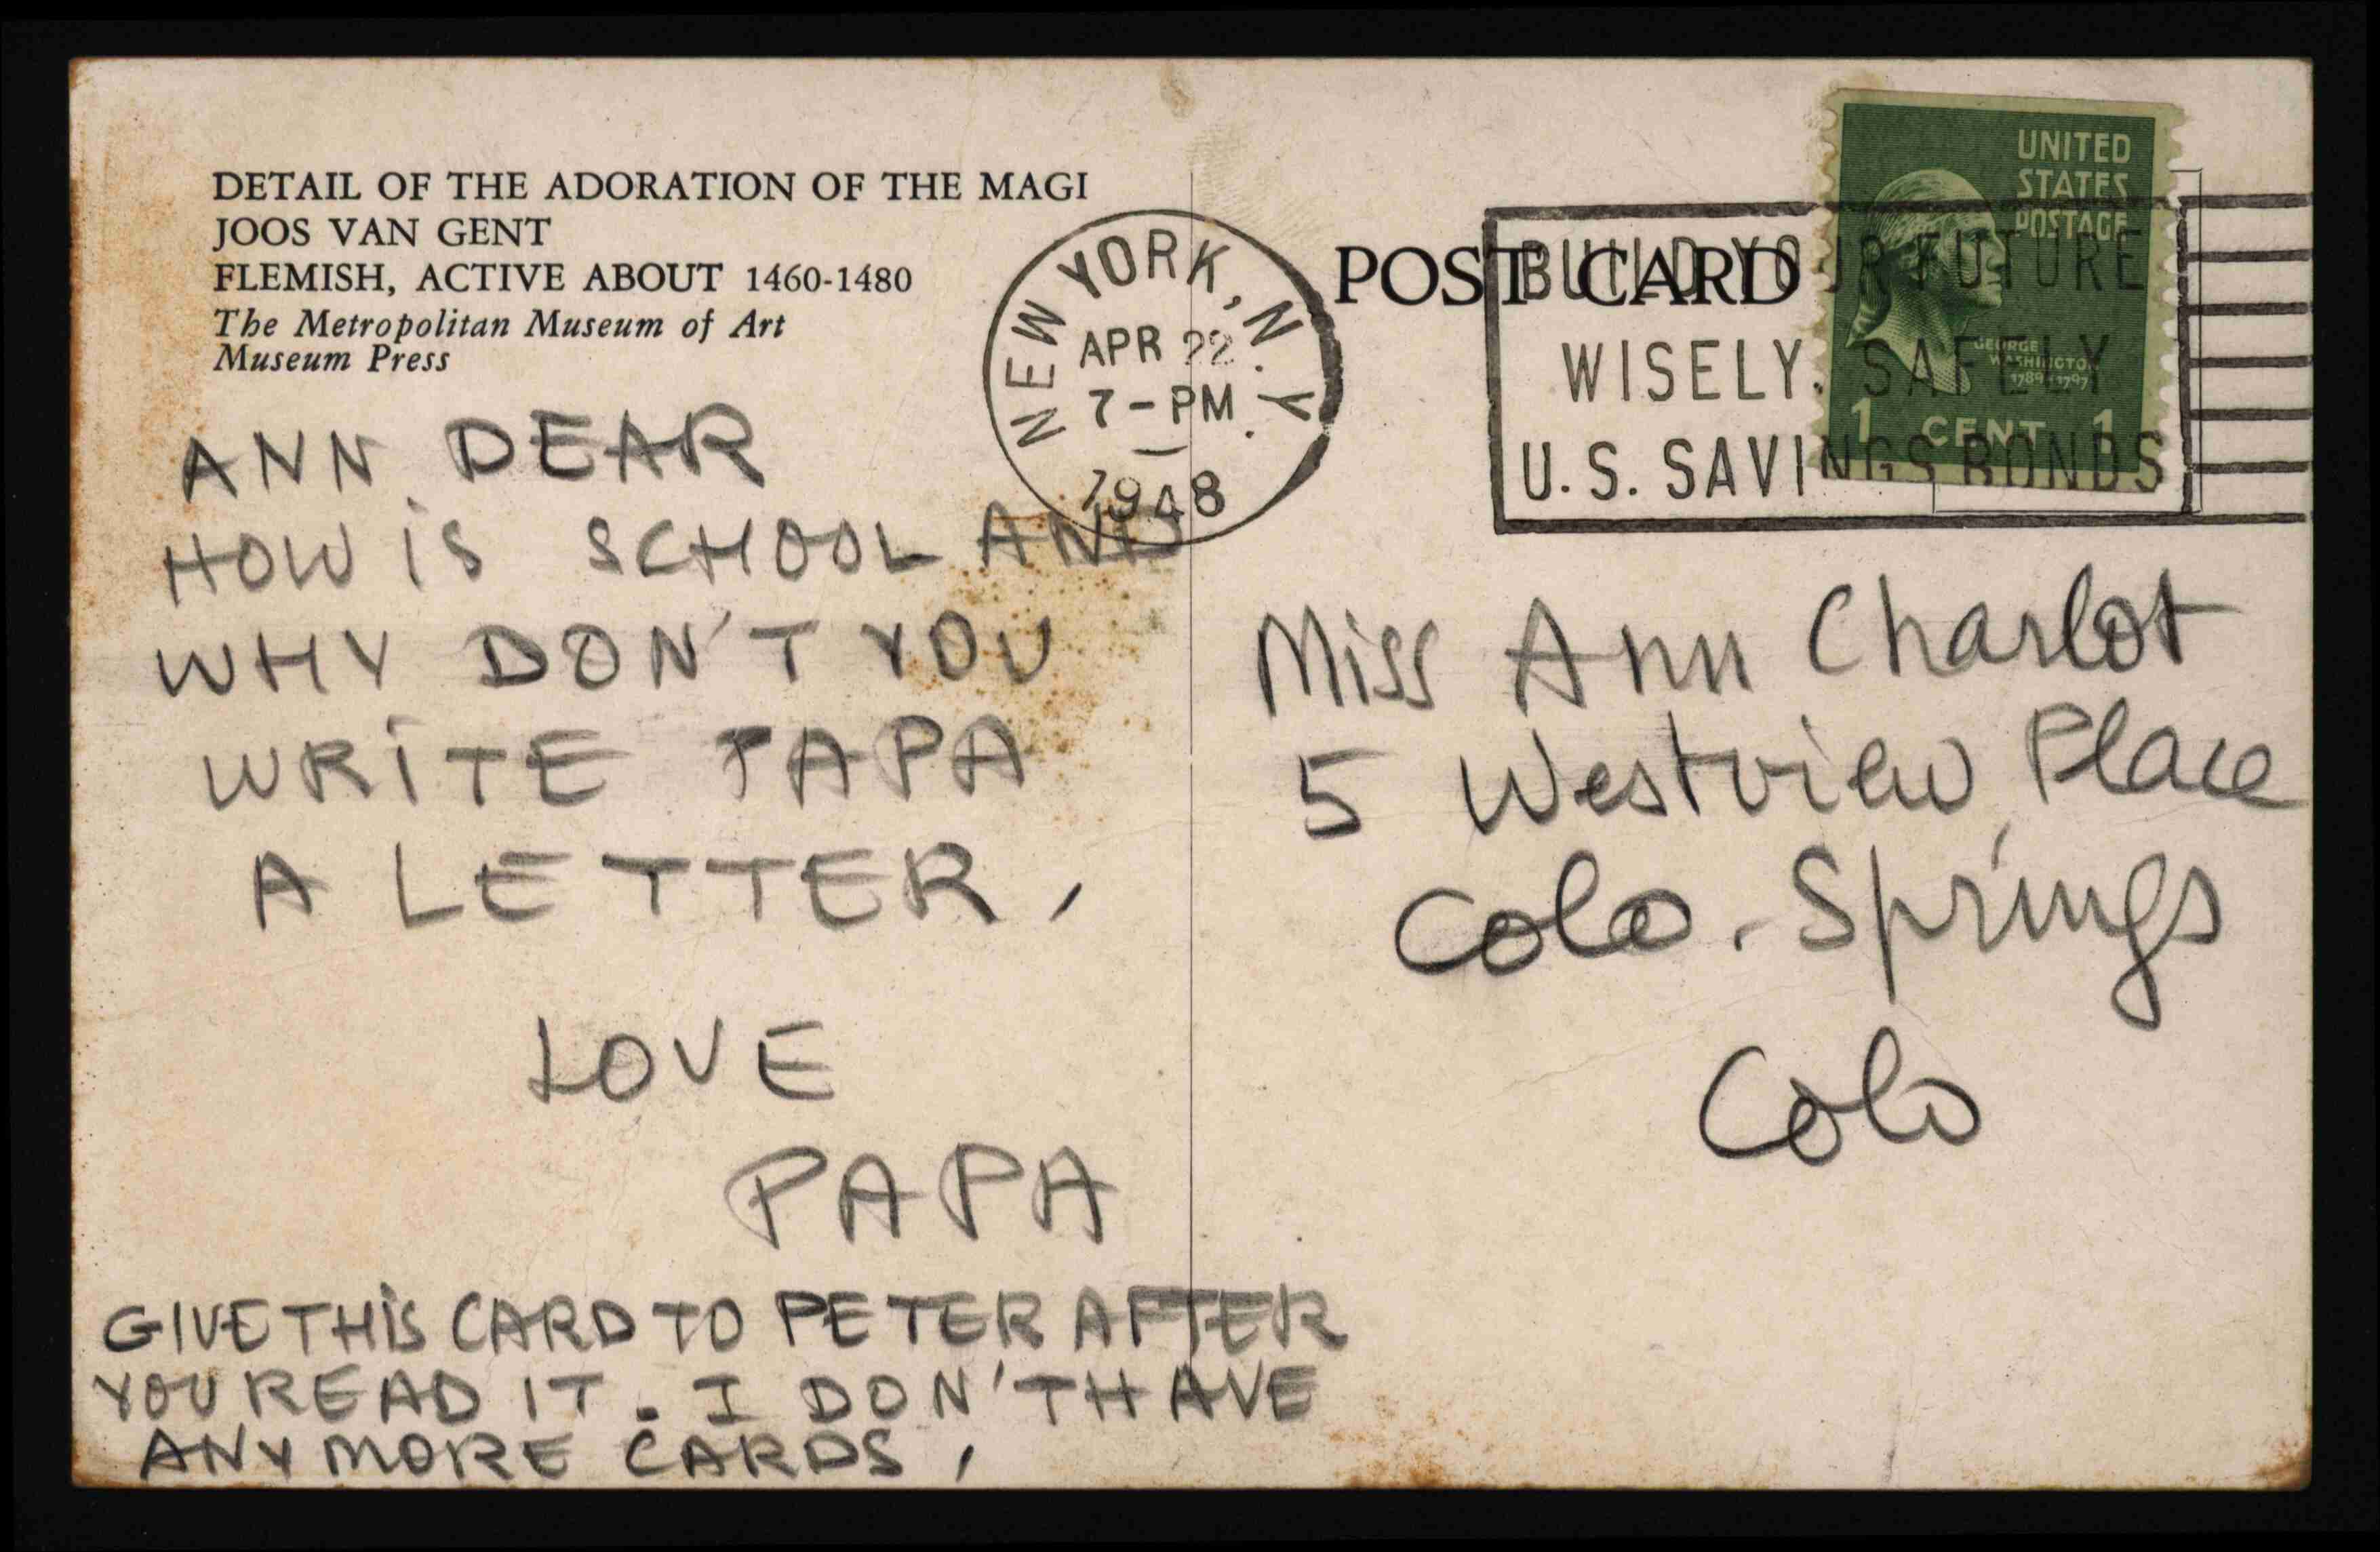 DETAIL OF THE ADORATION OF THE MAGI
JOOS VAN GENT
FLEMISH, ACTIVE ABOUT 1460-1480
The Metropolitan Museum of Art
Museum Press
ANN DEAR
HOW IS SCHOOL AND
WHY DON'T YOU
WRITE PAPA
A LETTER,
LOVE
PAPA
GIVE THIS CARD TO PETER AFTER
YOU READ IT. I DON'T HAVE
ANY MORE CARDS,
NEW YORK, N.Y.
APR 22
7-PM
1948
POST CARD
BUILD YOUR FUTURE
WISELY, SAFELY
U.S. SAVINGS BONDS
UNITED
STATES
POSTAGE
GEORGE
WASHINGTON
1789-1797
1 CENT 1
Miss Ann Charlot
5 Westview Place
Colo. Springs
Colo